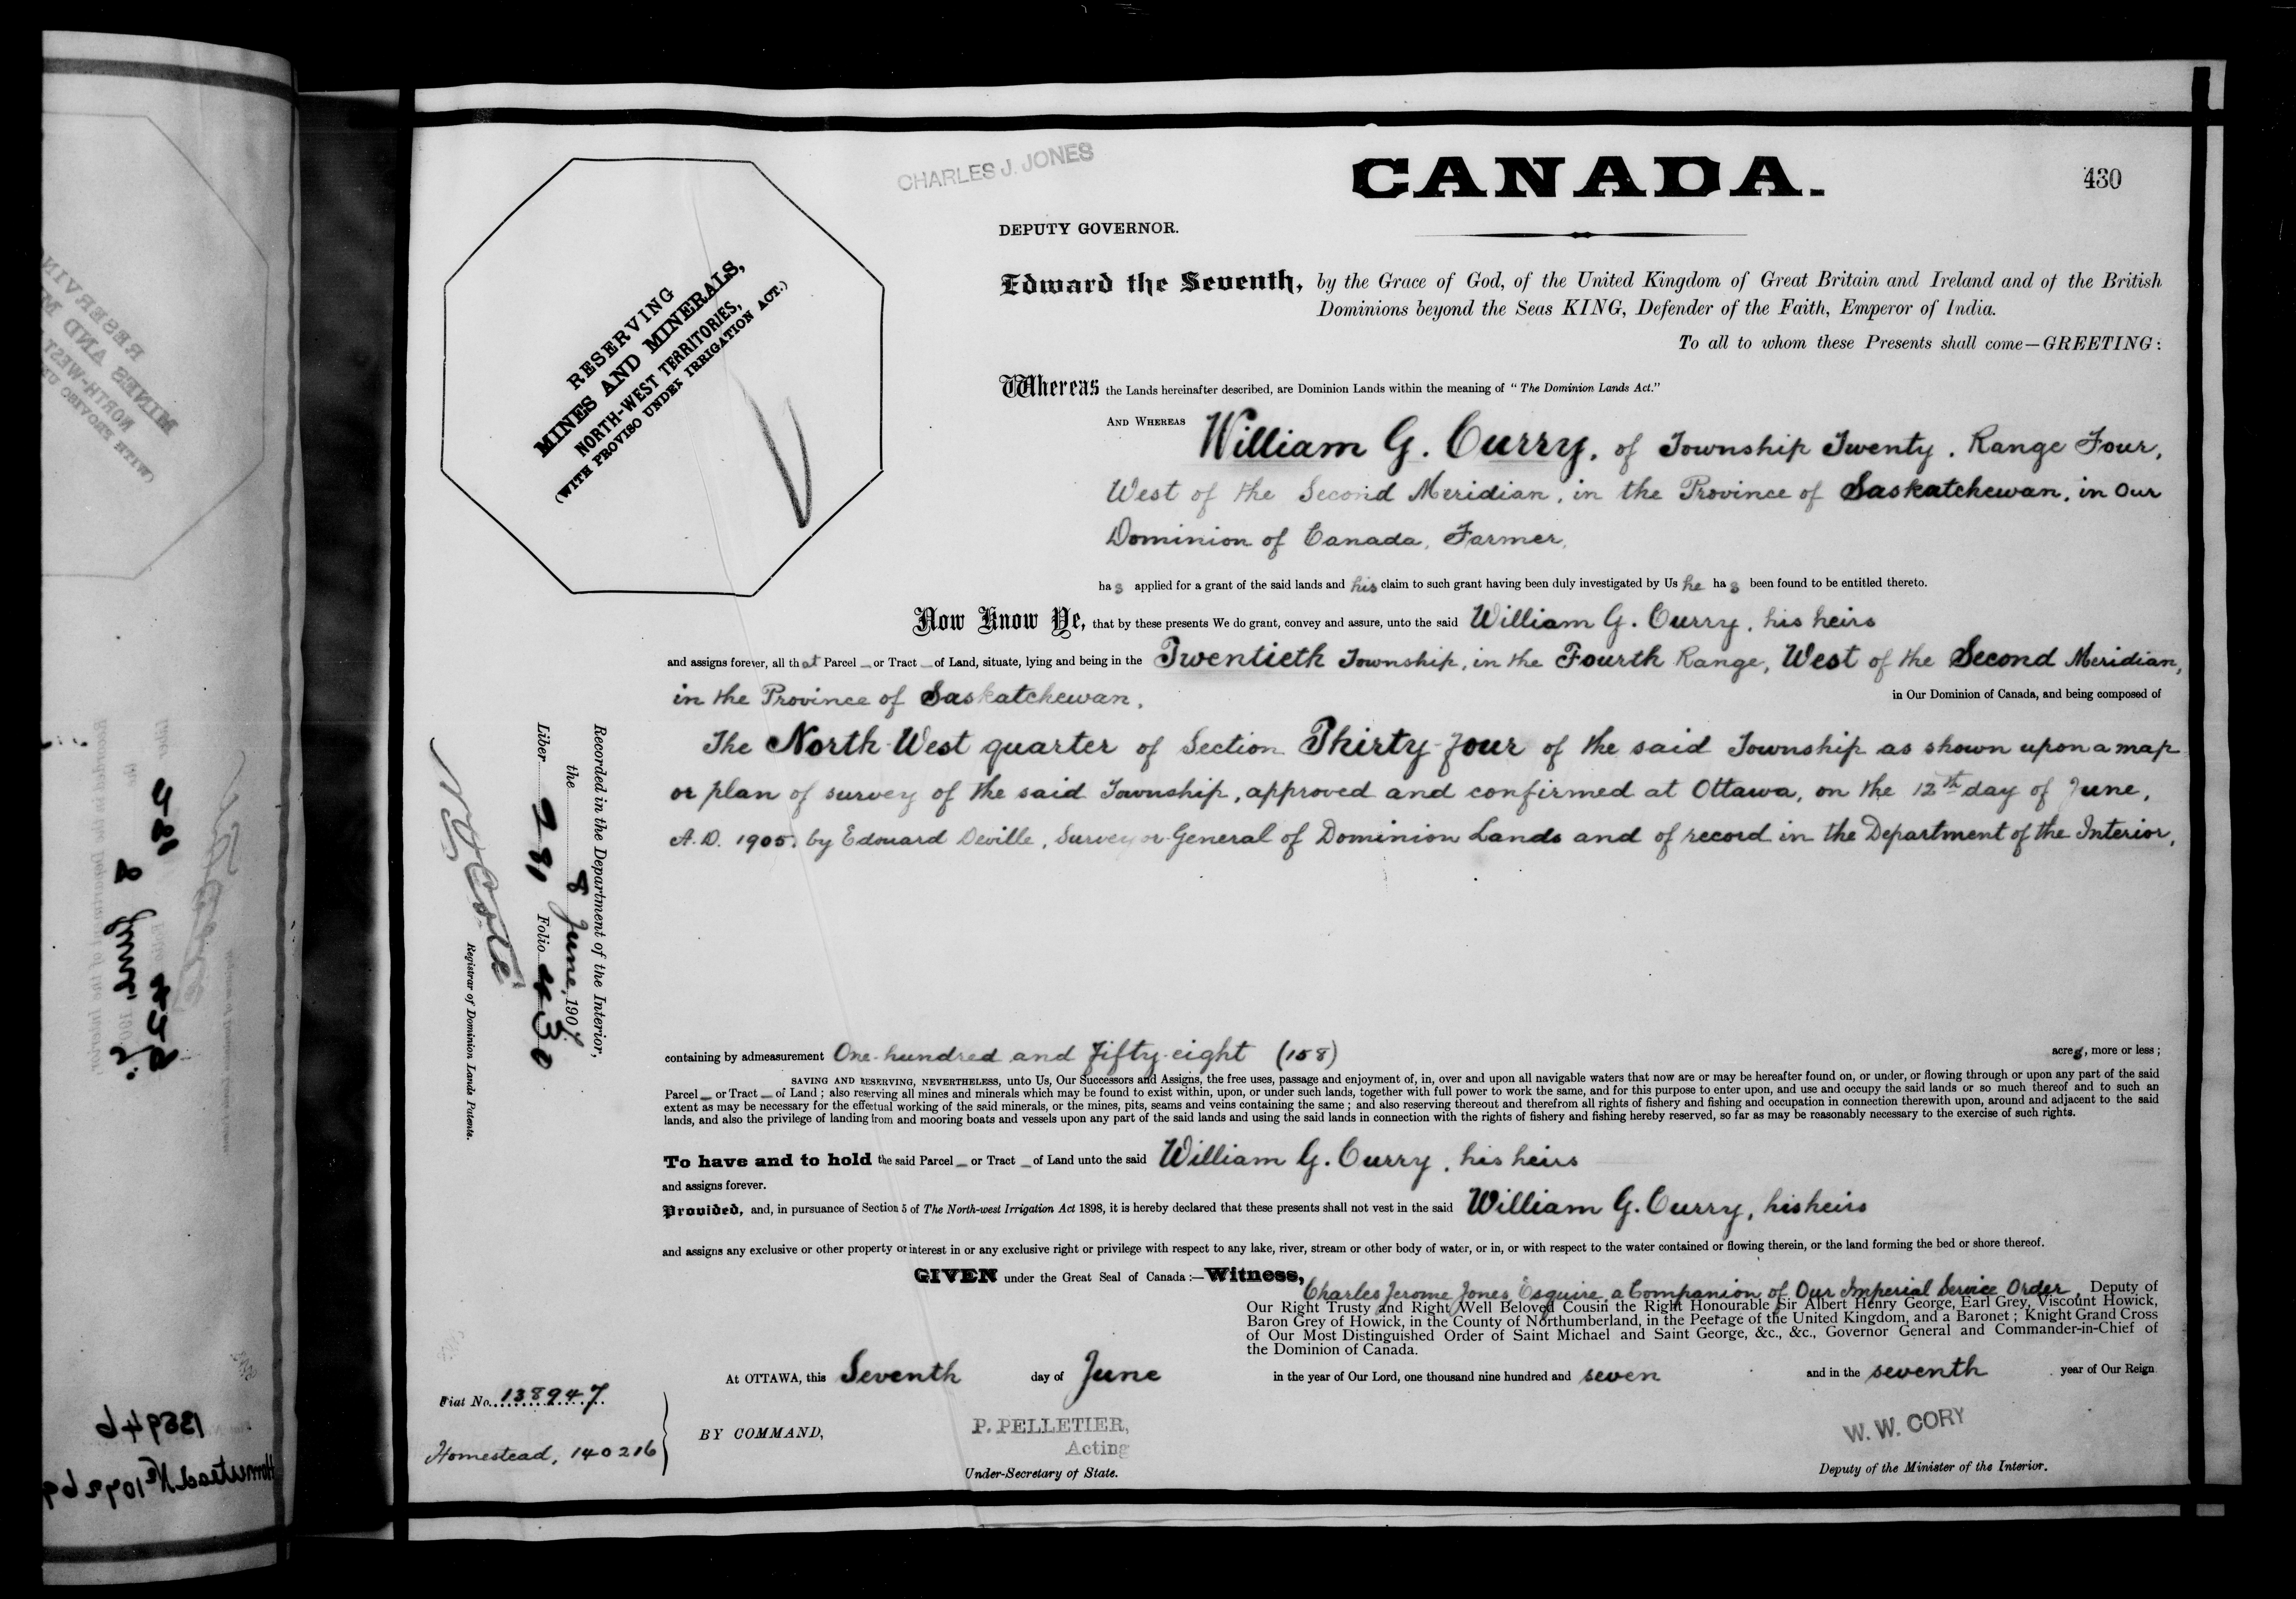 CHARLES J. JONES
CANADA.
430
DEPUTY GOVERNOR.
RESERVING
MINES AND MINERALS,
NORTH-WEST TERRITORIES,
(WITH PROVISO UNDER IRRIGATION ACT.)
Edward the Seventh, by the Grace of God, of the United Kingdom of Great Britain and Ireland and of the British
Dominions beyond the Seas KING, Defender of the Faith, Emperor of India.
To all to whom these Presents shall come—GREETING:
Whereas the Lands hereinafter described, are Dominion Lands within the meaning of "The Dominion Lands Act."
AND WHEREAS William G. Curry, of Township Twenty, Range Four,
West of the Second Meridian, in the Province of Saskatchewan, in Our
Dominion of Canada, Farmer,
has applied for a grant of the said lands and his claim to such grant having been duly investigated by Us he has been found to be entitled thereto.
Now Know Ye, that by these presents We do grant, convey and assure, unto the said William G. Curry, his heirs
and assigns forever, all that Parcel _ or Tract _ of Land, situate, lying and being in the Twentieth Township, in the Fourth Range, West of the Second Meridian,
in the Province of Saskatchewan, in Our Dominion of Canada, and being composed of
The North West quarter of Section Thirty-four of the said Township as shown upon a map
or plan of survey of the said Township, approved and confirmed at Ottawa, on the 12th day of June,
A.D. 1905, by Edouard Deville, Surveyor General of Dominion Lands and of record in the Department of the Interior,
Recorded in the Department of the Interior,
the 8 June, 1907.
Liber 281 Folio 430
N O Coté
Registrar of Dominion Lands Patents.
containing by admeasurement One hundred and fifty-eight (158) acres, more or less;
SAVING AND RESERVING, NEVERTHELESS, unto Us, Our Successors and Assigns, the free uses, passage and enjoyment of, in, over and upon all navigable waters that now are or may be hereafter found on, or under, or flowing through or upon any part of the said
Parcel _ or Tract _ of Land; also reserving all mines and minerals which may be found to exist within, upon, or under such lands, together with full power to work the same, and for this purpose to enter upon, and use and occupy the said lands or so much thereof and to such an
extent as may be necessary for the effectual working of the said minerals, or the mines, pits, seams and veins containing the same; and also reserving thereout and therefrom all rights of fishery and fishing and occupation in connection therewith upon, around and adjacent to the said
lands, and also the privilege of landing from and mooring boats and vessels upon any part of the said lands and using the said lands in connection with the rights of fishery and fishing hereby reserved, so far as may be reasonably necessary to the exercise of such rights.
To have and to hold the said Parcel _ or Tract _ of Land unto the said William G. Curry, his heirs
and assigns forever.
Provided, and, in pursuance of Section 5 of The North-west Irrigation Act 1898, it is hereby declared that these presents shall not vest in the said William G. Curry, his heirs
and assigns any exclusive or other property or interest in or any exclusive right or privilege with respect to any lake, river, stream or other body of water, or in, or with respect to the water contained or flowing therein, or the land forming the bed or shore thereof.
GIVEN under the Great Seal of Canada:—Witness,
Charles Jerome Jones, Esquire, a Companion of Our Imperial Service Order, Deputy of
Our Right Trusty and Right Well Beloved Cousin the Right Honourable Sir Albert Henry George, Earl Grey, Viscount Howick,
Baron Grey of Howick, in the County of Northumberland, in the Peerage of the United Kingdom, and a Baronet; Knight Grand Cross
of Our Most Distinguished Order of Saint Michael and Saint George, &c., &c., Governor General and Commander-in-Chief of
the Dominion of Canada.
At OTTAWA, this Seventh day of June in the year of Our Lord, one thousand nine hundred and seven and in the seventh year of Our Reign
Fiat No. 138947
Homestead, 140216
BY COMMAND,
P. PELLETIER,
Acting
Under-Secretary of State.
W. W. CORY
Deputy of the Minister of the Interior.